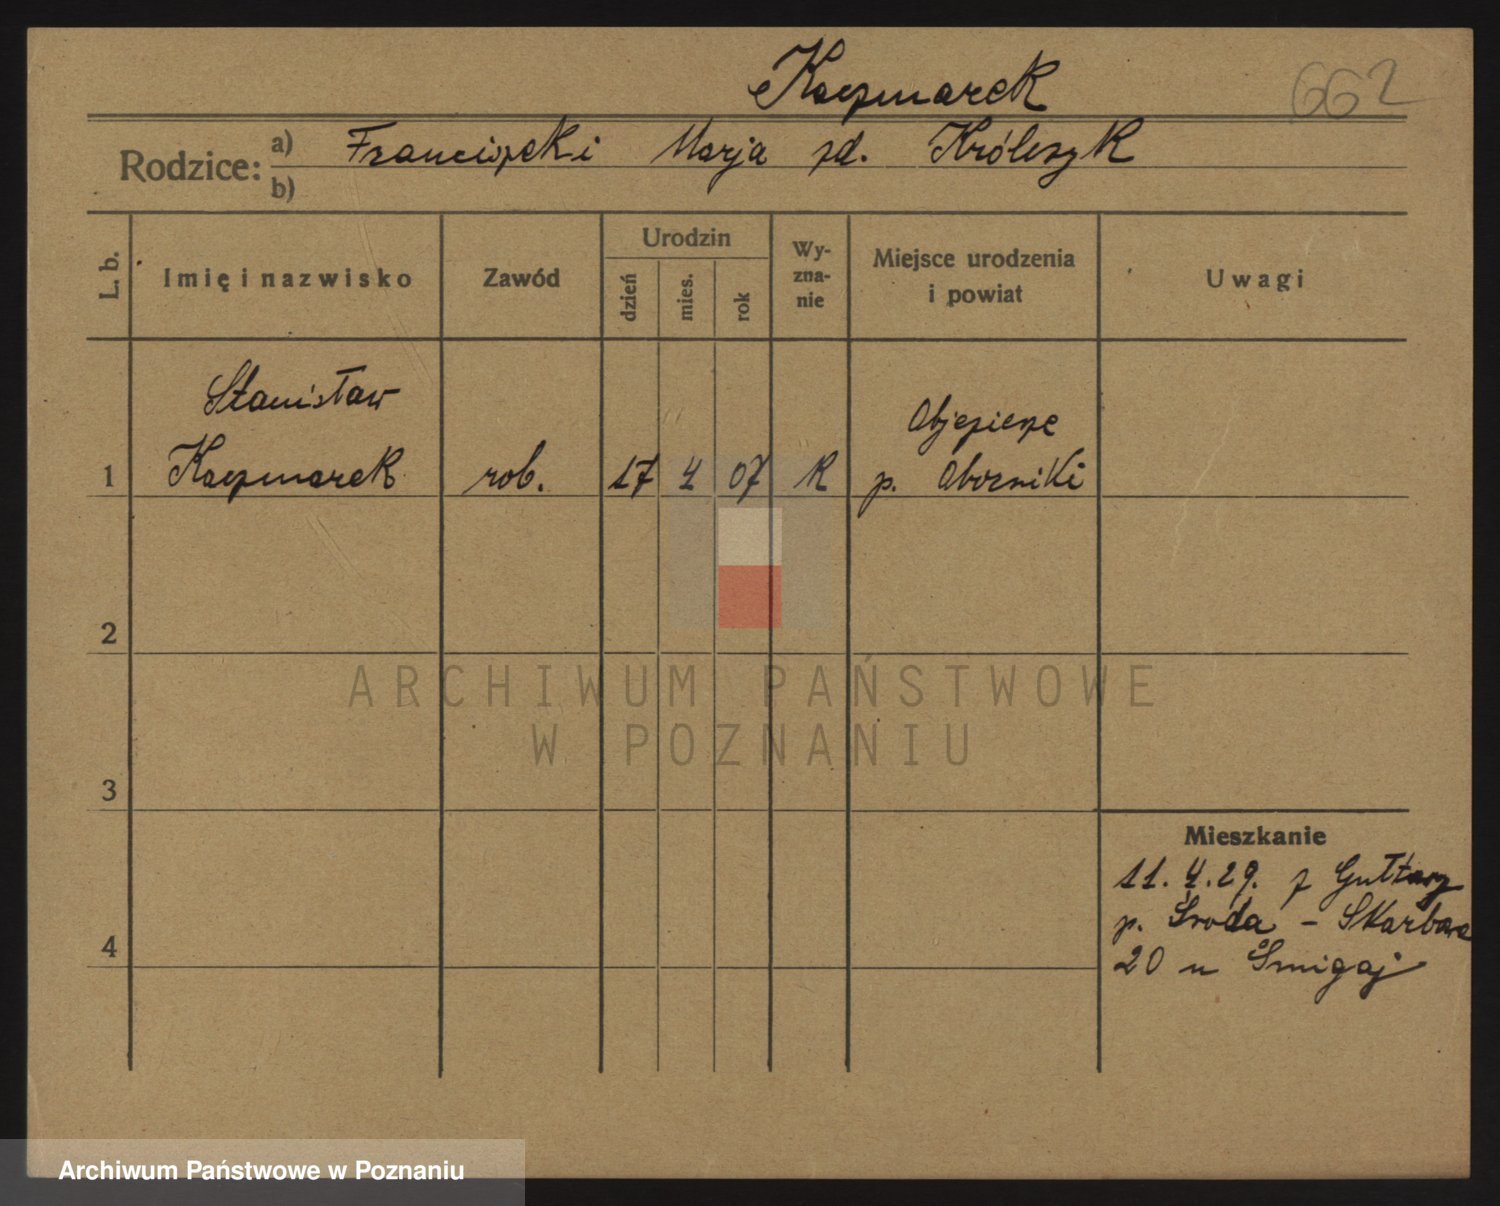 Kaczmarek
662
Rodzice:
a) Franciszek i Marja zd. Królczyk
b)
L. b.
Imię i nazwisko
Zawód
Urodzin
dzień
mies.
rok
Wy-
zna-
nie
Miejsce urodzenia
i powiat
Uwagi
Stanisław
Objezierze
1 Kaczmarek rob. 17 4 07 K p. Oborniki
2
ARCHIWUM PAŃSTWOWE
W POZNANIU
3
Mieszkanie
11.4.29. z Gułtowy
p. Środa - Skarbowa
4
20 u Śmigaj
Archiwum Państwowe w Poznaniu